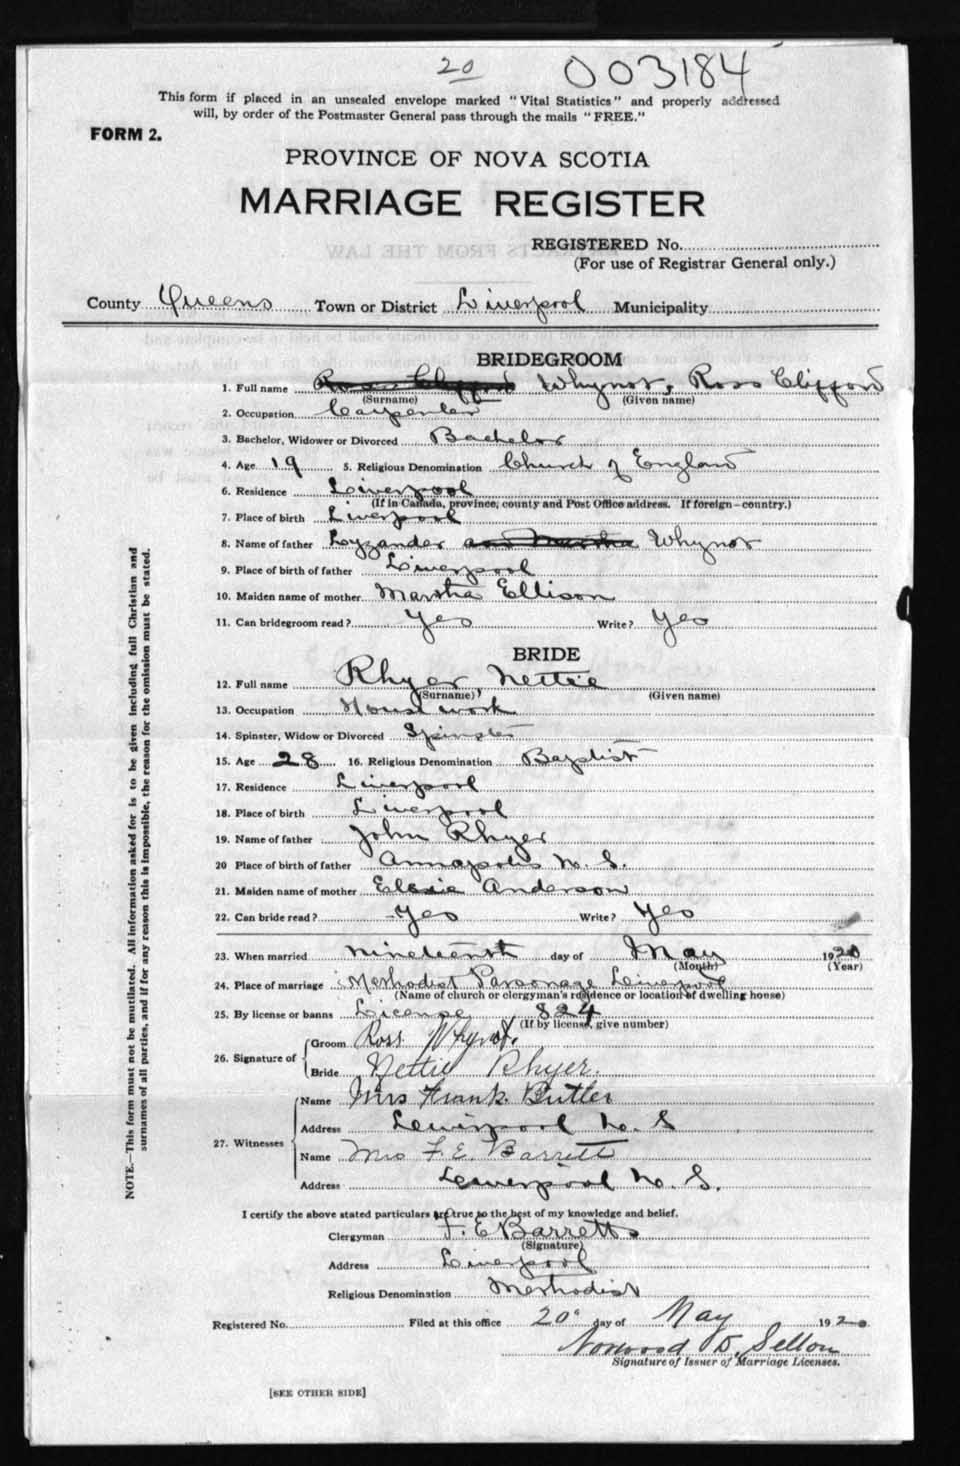 20 003184
This form if placed in an unsealed envelope marked "Vital Statistics" and properly addressed
will, by order of the Postmaster General pass through the mails "FREE."
FORM 2.
PROVINCE OF NOVA SCOTIA
MARRIAGE REGISTER
REGISTERED No.
(For use of Registrar General only.)
County Queens Town or District Liverpool Municipality
BRIDEGROOM
1. Full name Ross Clifford Whynot, Ross Clifford
(Surname) (Given name)
2. Occupation Carpenter
3. Bachelor, Widower or Divorced Bachelor
4. Age 19 5. Religious Denomination Church of England
6. Residence Liverpool
(If in Canada, province, county and Post Office address. If foreign—country.)
7. Place of birth Liverpool
8. Name of father Lyzander and Martha Whynot
9. Place of birth of father Liverpool
10. Maiden name of mother Martha Ellison
11. Can bridegroom read? Yes Write? Yes
BRIDE
12. Full name Rhyer, Nettie
(Surname) (Given name)
13. Occupation House work
14. Spinster, Widow or Divorced Spinster
15. Age 28 16. Religious Denomination Baptist
17. Residence Liverpool
18. Place of birth Liverpool
19. Name of father John Rhyer
20 Place of birth of father Annapolis N. S.
21. Maiden name of mother Elsie Anderson
22. Can bride read? Yes Write? Yes
23. When married nineteenth day of May 1920
(Month) (Year)
24. Place of marriage Methodist Parsonage Liverpool
(Name of church or clergyman's residence or location of dwelling house)
25. By license or banns License 824
(If by license, give number)
26. Signature of Groom Ross Whynot.
Bride Nettie Rhyer.
27. Witnesses Name Mrs Frank Butler
Address Liverpool N. S
Name Mrs F. E. Barrett
Address Liverpool N. S.
I certify the above stated particulars are true to the best of my knowledge and belief.
Clergyman F. E Barretts
(Signature)
Address Liverpool
Religious Denomination Methodist
Registered No. Filed at this office 20 day of May 1920
Norwood D. Sellon
Signature of Issuer of Marriage Licenses.
[SEE OTHER SIDE]
NOTE.—This form must not be mutilated. All information asked for is to be given including full Christian and
surnames of all parties, and if for any reason this is impossible, the reason for the omission must be stated.